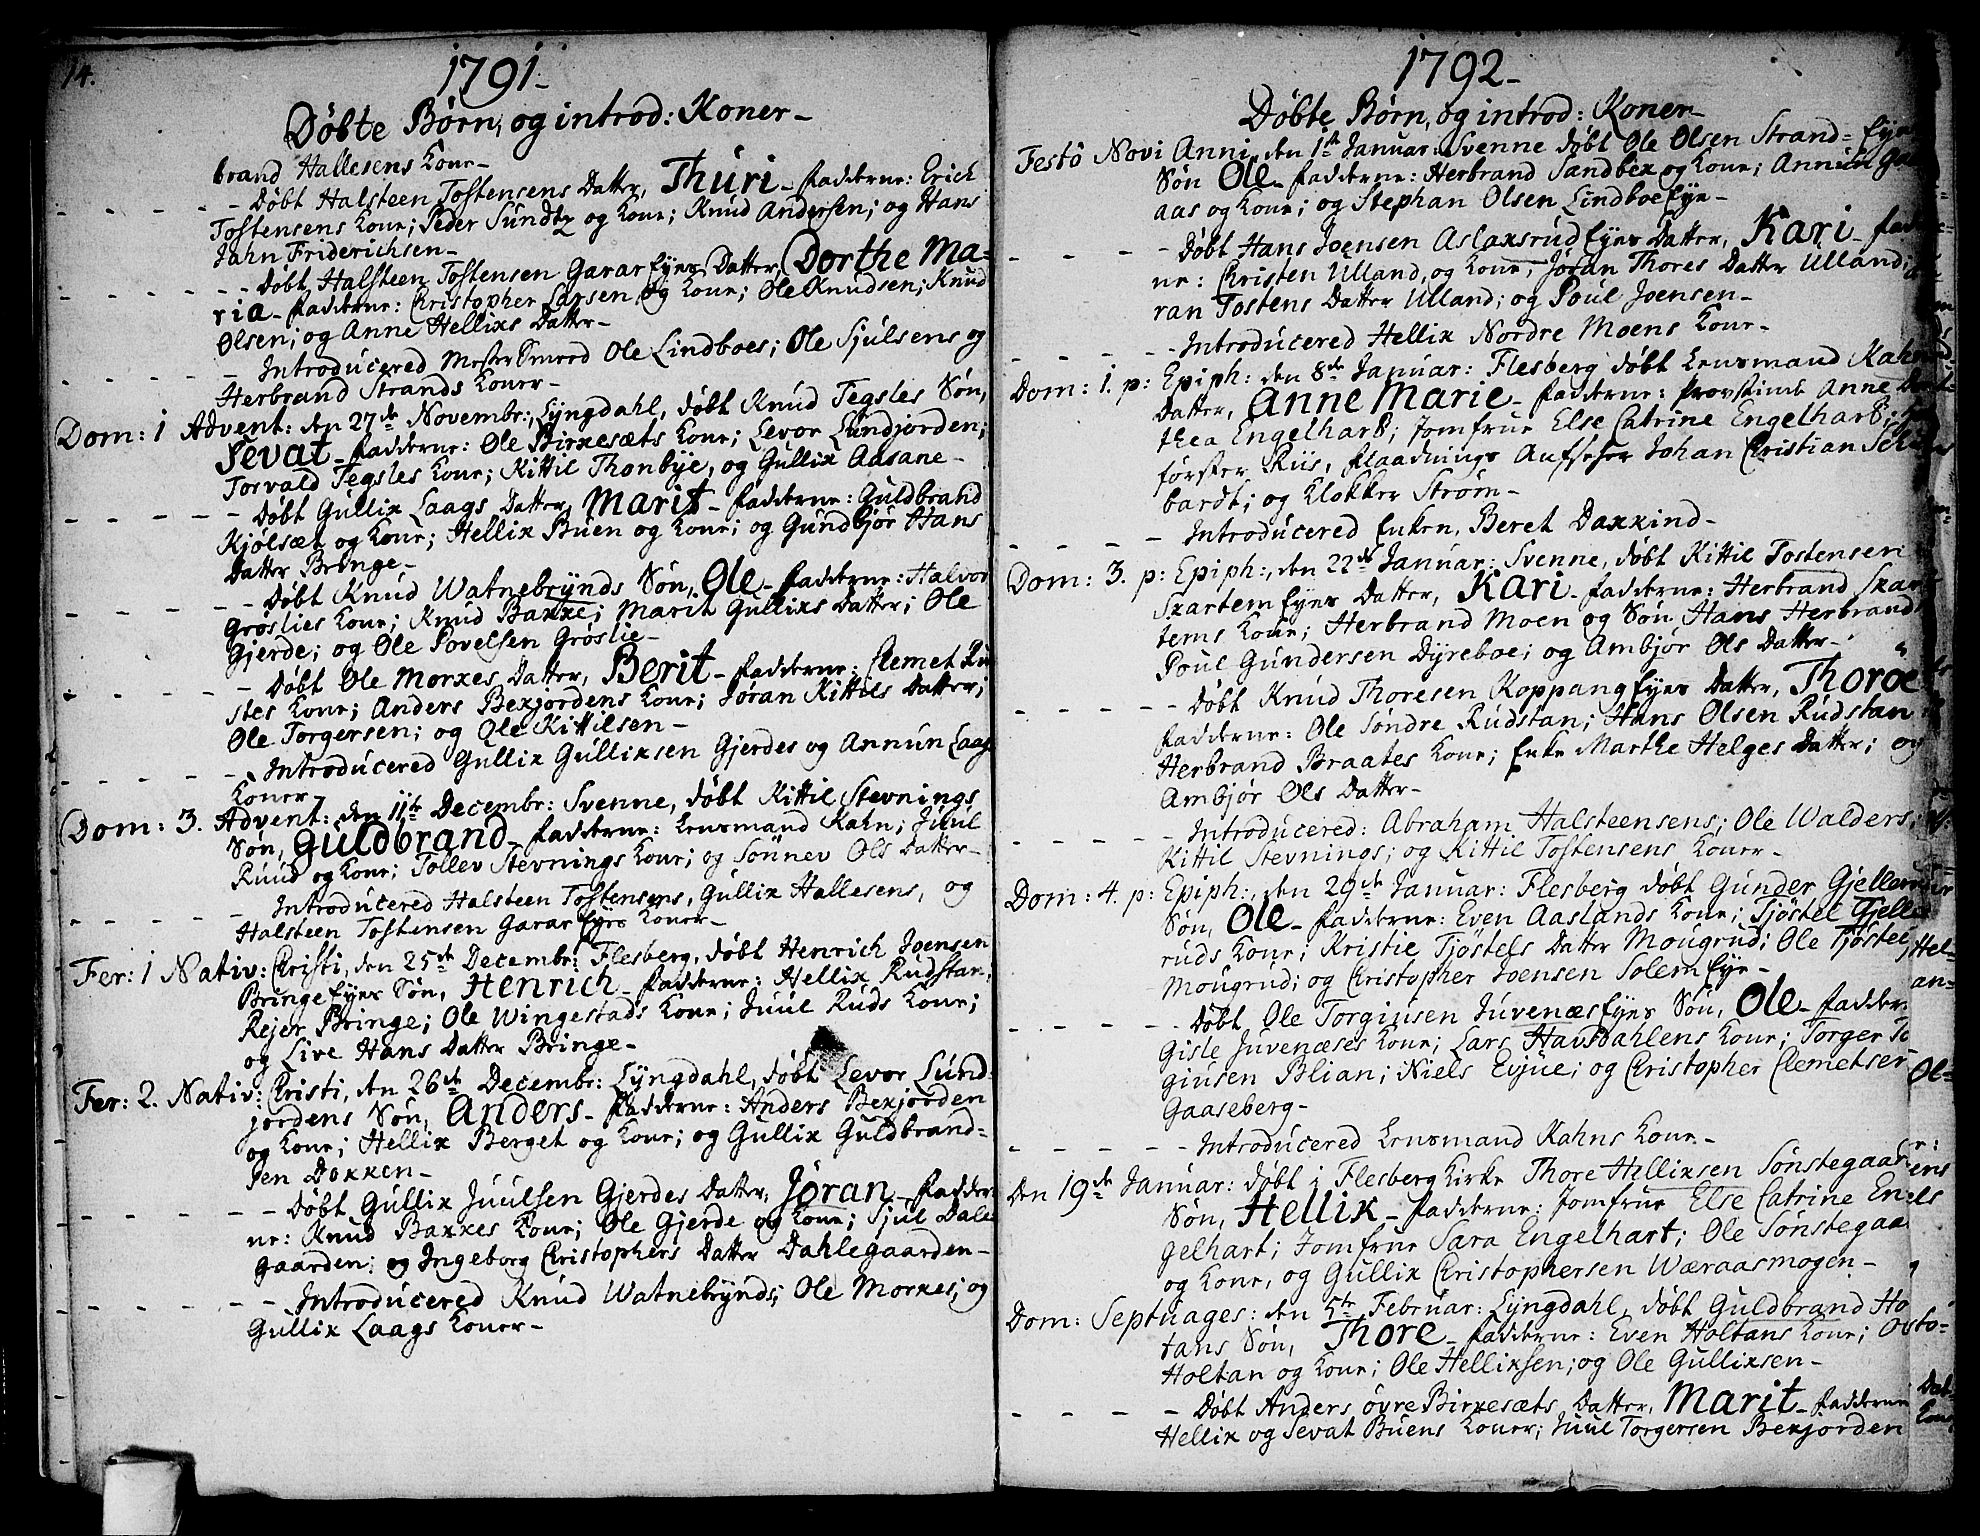 14.
1791.
Döbte Börn, og introd: Koner
brand Hallesens Kone
- - - - - Döbt Halsteen Tostensens Datter, Thuri_ Fadderne: Erich
Tostensens Kone; Peder Sundtz og Kone; Knud Andersen; og Hans
Jahn Friderichsen
- - - - - Döbt, Halsteen Tostensen Garar Eyes Datter, Dorthe Ma=
ria_ Fadderne: Christopher Larsen og Kone; Ole Knudsen; Knud
Olsen; og Anne Hellixs Datter
- - - - - Introduced Mester Smed Ole Lindboes; Ole Sjulsens og
Herbrand Strands Koner
Dom: 1 Advent: den 27de Novembr: Lyngdahl, döbt Knud Tegsles Sön,
Sevat_ Fadderne: Ole Birxesæts Kone; Levor Lundjorden;
Torvald Tegsles Kone; Kittil Thonbye, og Gullix Aasane
- - - - - Döbt Gullix Laags Datter, Marit_ Fadderne: Guldbrand
Kjölsæt og Kone; Hellix Buen og Kone; og Gundbjör Hans
Datter Bringe
- - - - - Döbt Knud Watnebrynds Sön, Ole_ Fadderne: Halvor
Gröslies Kone; Knud Baxxe; Marit Gullixs Datter; Ole
Gjerde; og Ole Povelsen Gröslie
- - - - - Döbt Ole Morxes Datter, Berit_ Fadderne: Clemet Ru
stes Kone; Anders Bexjordens Kone; Jöran Kittils Datter;
Ole Torgersen; og Ole Kittilsen
- - - - - Introduced Gullix Gullixsen Gjerdes og Annun Laags
Koner
Dom: 3. Advent: den 11te Decembr: Svenne, döbt Kittil Stevnings
Sön, Guldbrand_ Fadderne: Lensmand Kahn; Juul
Ruud og Kone; Tollev Stevnings Kone; og Sonnev Ols Datter
- - - - - Introduced Halsteen Tostensens, Gullix Hallesens, og
Halsteen Tostensen Garar Eyes Koner
Fer: 1 Nativ: Christi, den 25de Decembr: Flesberg, döbt Henrich Joensen
Bringe Eyes Sön, Henrich_ Fadderne: Hellix Rudstan,
Rejer Bringe; Ole Wingestads Kone; Juul Ruds Kone;
og Live Hans Datter Bringe
Fer: 2. Nativ: Christi, den 26de Decembr: Lyngdahl, döbt Levor Lund=
jordens Sön, Anders_ Fadderne: Anders Bexjorden
og Kone; Hellix Berget og Kone; og Gullix Guldbrand=
sen Doxxen
- - - - - Döbt Gullix Juulsen Gjerdes Datter, Jöran_ Fadder
ne: Knud Baxxes Kone; Ole Gjerde og Kone; Sjul Dale
gaarden; og Ingeborg Christophers Datter Dahlegaarden
- - - - - Introduced Knud Watnebrynds, Ole Morxes; og
Gullix Laags Koner
1792
Döbte Börn, og introd: Koner
Festo Novi Anni, den 1ste Januar: Svenne döbt Ole Olsen Strand= Eyes
Sön Ole_ Fadderne: Herbrand Sandbex og Kone; Annun
aas og Kone; og Stephan Olsen Lindboe Eye
- - - - Döbt Hans Joensen Aslaxsrud Eyes Datter, Kari_ Fadde
ne: Christen Ulland, og Kone, Jöran Thores Datter Ulland;
ran Tostens Datter Ulland; og Poul Joensen
- - - - - Introduced Hellix Nordre Moens Kone
Dom: 1. p: Epiph: den 8de Januar: Flesberg döbt Lensmand Kahns
Datter, Anne Marie_ Fadderne: Provstinde Anne Doro
thea Engelhart; Jomfrue Else Catrine Engelhart;
förster Riis, Flaadnings Aufseher Johan Christian
bardt; og Klokker Ström
- - - - Introduced Enken, Beret Daxxind
Dom: 3. p: Epiph:, den 22de Januar: Svenne, döbt Kittil Tostensen
Sxartem Eyes Datter, Kari_ Fadderne: Herbrand Sxar
tems Kone; Herbrand Moen og Sön Hans Herbrands
Poul Gundersen Dyreboe; og Ambjör Ols Datter
- - - - - Döbt Knud Thoresen Koppang Eyes Datter, Thoroe
Fadderne: Ole Söndre Rudstan; Hans Olsen Rudstan
Herbrand Braates Kone; Enke Marthe Helges Datter; og
Ambjör Ols Datter
- - - - Introduced: Abraham Halsteensens; Ole Walders;
Kittil Stevnings; og Kittil Tostensens Koner
Dom: 4. p: Epiph:, den 29de Januar: Flesberg döbt Gunder Gjelleruds
Sön, Ole_ Fadderne: Even Aaslands Kone; Tjöstel Gjelle
ruds Kone; Kristie Tjöstels Datter Mougrud; Ole Tjöstel
Mougrud; og Christopher Joensen Solem Eye
- - - - - Döbt Ole Torgiusen Juvenæs Eyes Sön, Ole_ Fadder
Gisle Juvenæses Kone; Lars Havsdahlens Kone; Torger
giusen Blian; Niels Evjue; og Christopher Clemetsen
Gaaseberg
- - - - - Introduced Lensmand Kahns Kone
Den 19de Januar: döbt i Flesberg Kirke Thore Hellixsen Sönstegaar
Sön, Hellix_ Fadderne: Jomfrue Else Catrine En
gelhart; Jomfrue Sara Engelhart; Ole Sönstegaa
og Kone, og Gullix Christophersen Wæraasmogen
Dom: Septuages: den 5te Februar: Lyngdahl, döbt Guldbrand Hol
tans Sön, Thore_ Fadderne: Even Holtans Kone;
Holtan og Kone; Ole Hellixsen; og Ole Gullixsen
- - - - Döbt Anders övre Birxesæts Datter, Marit_ Fadderne
Hellix og Sevat Buens Koner; Juul Torgersen Bexjorden